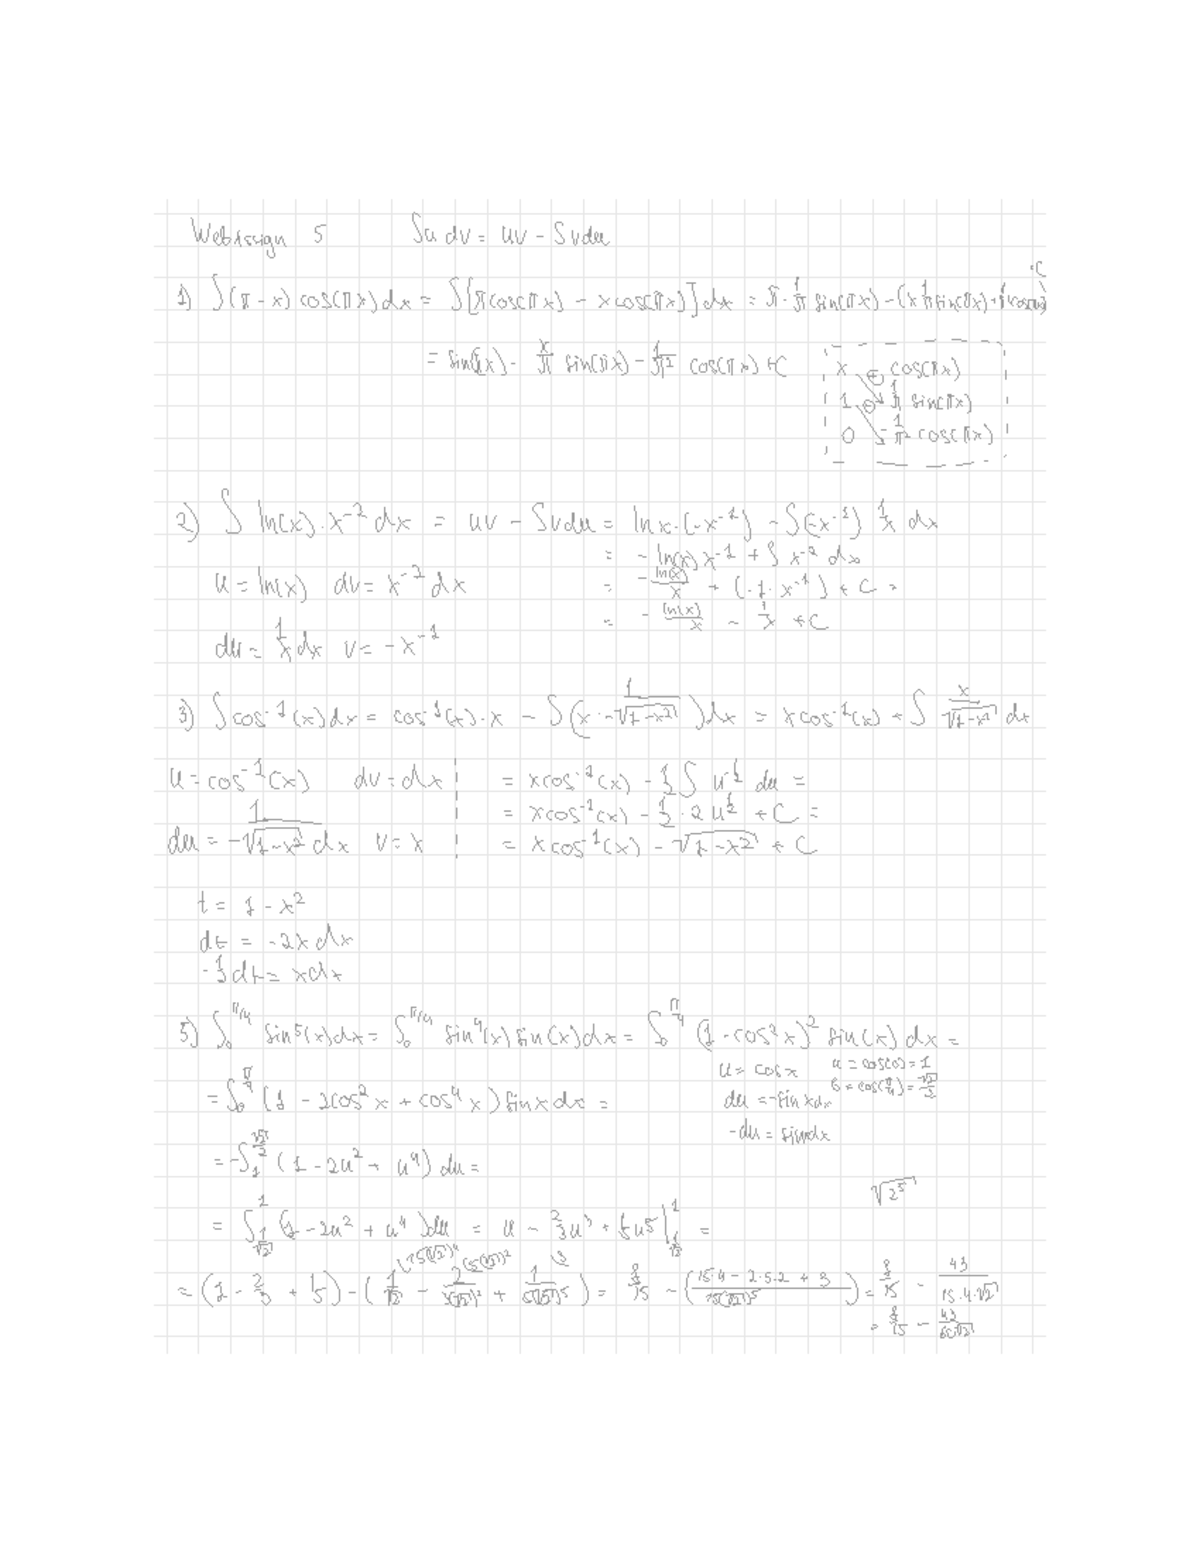 WebAssign 5 ∫u dv = uv - ∫v du
1) ∫(π - x) cos(πx) dx = ∫[π cos(πx) - x cos(πx)] dx = π · 1/π sin(πx) - (x 1/π sin(πx) + 1/π² cos(πx)) + C
= sin(πx) - x/π sin(πx) - 1/π² cos(πx) + C
x ⊕ cos(πx)
1 ⊖ 1/π sin(πx)
0 -1/π² cos(πx)
2) ∫ ln(x) · x⁻² dx = uv - ∫v du = ln x · (-x⁻¹) - ∫(-x⁻¹) 1/x dx
= - ln(x) x⁻¹ + ∫ x⁻² dx
u = ln(x) dv = x⁻² dx
= - ln(x)/x + (-1 · x⁻¹) + C =
= - ln(x)/x - 1/x + C
du = 1/x dx v = -x⁻¹
3) ∫cos⁻¹(x) dx = cos⁻¹(x) · x - ∫(x · - 1/√(1-x²)) dx = x cos⁻¹(x) + ∫ x/√(1-x²) dx
u = cos⁻¹(x) dv = dx
= x cos⁻¹(x) - 1/2 ∫ u^(-1/2) du =
= x cos⁻¹(x) - 1/2 · 2 u^(1/2) + C =
du = - 1/√(1-x²) dx v = x
= x cos⁻¹(x) - √(1-x²) + C
t = 1 - x²
dt = -2x dx
-1/2 dt = x dx
5) ∫₀^(π/4) sin⁵(x) dx = ∫₀^(π/4) sin⁴(x) sin(x) dx = ∫₀^(π/4) (1 - cos²x)² sin(x) dx =
u = cos x a = cos(0) = 1
b = cos(π/4) = √2/2
= ∫₀^(π/4) (1 - 2cos²x + cos⁴x) sin x dx =
du = -sin x dx
-du = sin x dx
= -∫₁^(√2/2) (1 - 2u² + u⁴) du =
√2⁵
= ∫_(1/√2)^1 (1 - 2u² + u⁴) du = u - 2/3 u³ + 1/5 u⁵ |_(1/√2)^1 =
= (1 - 2/3 + 1/5) - (1/√2 - 2/3(√2)³ + 1/5(√2)⁵) = 8/15 - ((15·4 - 2·5·2 + 3)/15(√2)⁵) = 8/15 - 43/(15·4·√2)
= 8/15 - 43/60√2